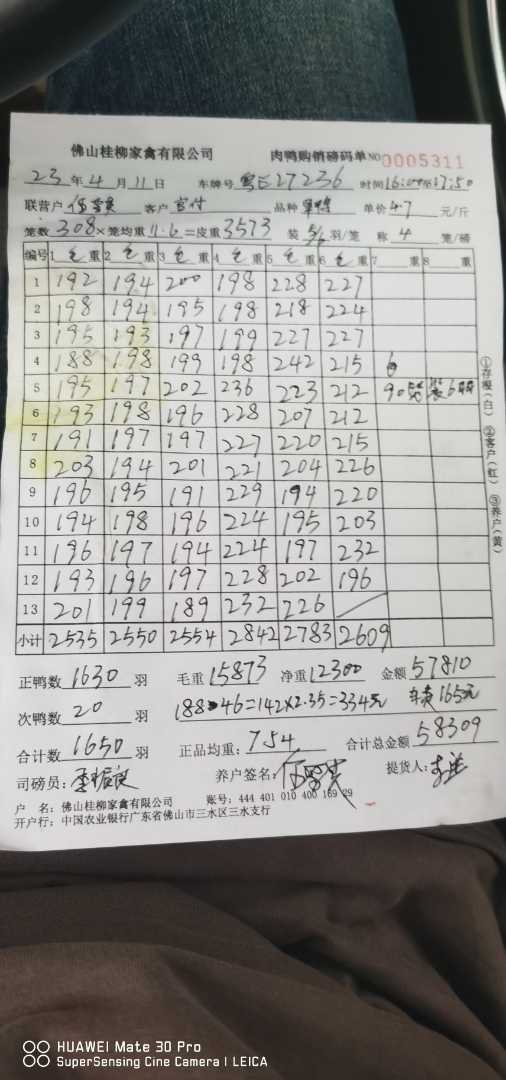 佛山桂柳家禽有限公司 肉鸭购销磅码单 NO 0005311
23年4月11日 车牌号 27236 时间16:00至17:50
联营户 客户 品种 单价4.7元/斤
笼数308×笼均重11.6=皮重3573 装5/6羽/笼 称4笼/磅
编号 1毛重 2毛重 3毛重 4毛重 5毛重 6毛重 7重 8重
1 192 194 200 198 228 227
2 198 194 195 198 218 224
3 195 193 197 199 227 227
4 188 198 199 198 242 215
5 195 197 202 236 223 212 90笼 装6
6 193 198 196 228 207 212
7 191 197 197 227 220 215
8 203 194 201 221 204 226
9 196 195 191 229 194 220
10 194 198 196 224 195 203
11 196 197 194 224 197 232
12 193 196 197 228 202 196
13 201 199 189 232 226
小计 2535 2550 2554 2842 2783 2609
①存根(白) ②客户(红) ③养户(黄)
正鸭数1630羽 毛重15873 净重12300 金额57810
次鸭数20羽 188-46=142×2.35=334元 165元
合计数1650羽 正品均重:7.54 合计总金额58309
司磅员: 养户签名: 提货人:
户 名:佛山桂柳家禽有限公司 账号:444 401 010 400 169 29
开户行:中国农业银行广东省佛山市三水区三水支行
HUAWEI Mate 30 Pro
SuperSensing Cine Camera | LEICA